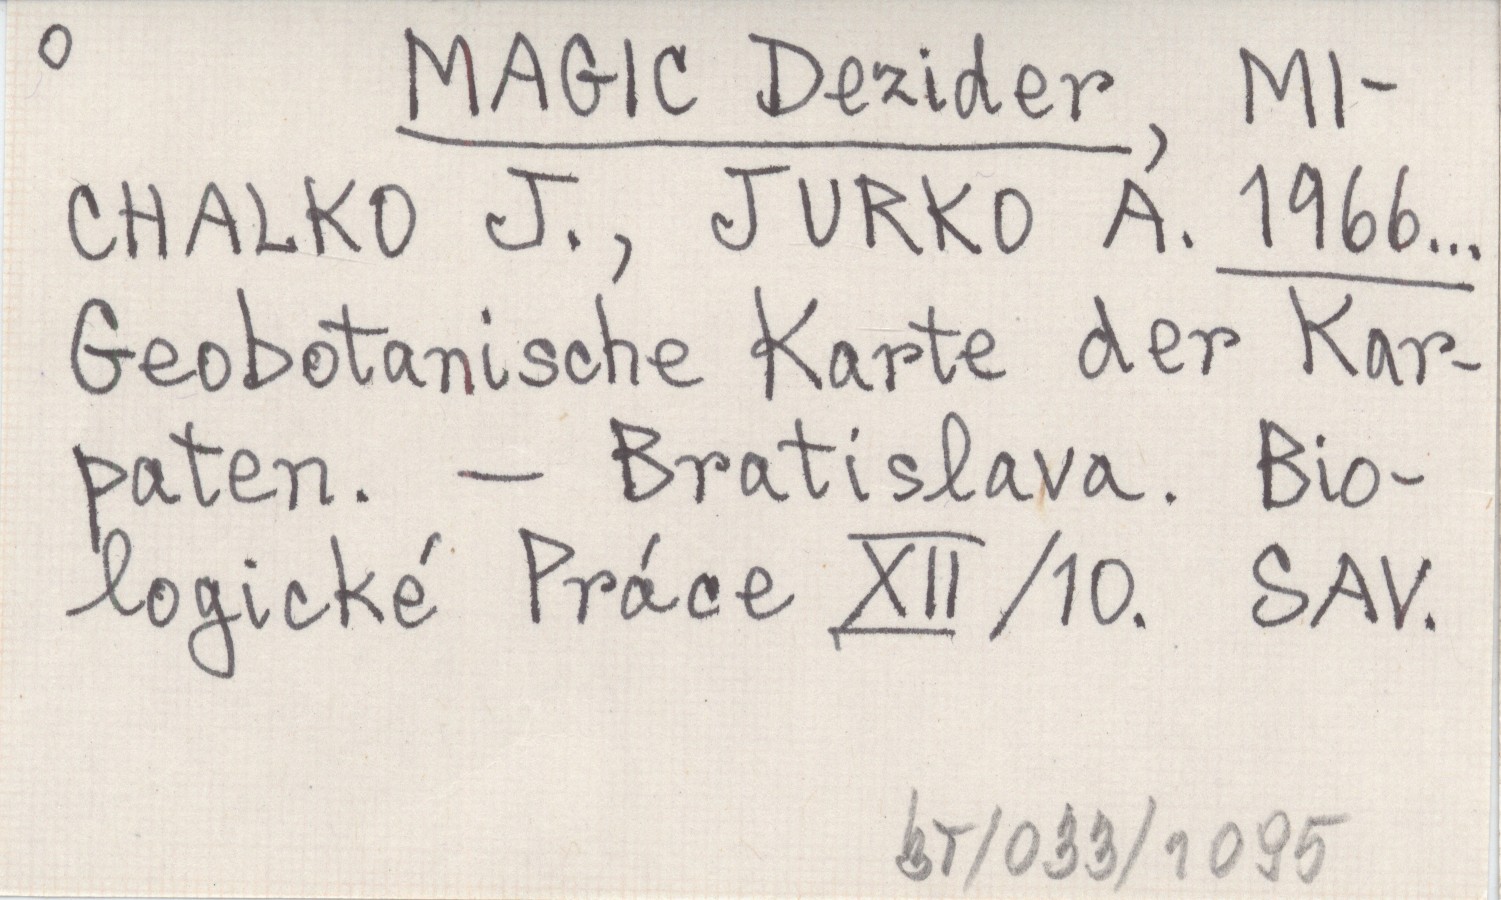 O MAGIC Dezider, MI-
CHALKO J., JURKO A. 1966...
Geobotanische Karte der Kar-
paten. — Bratislava. Bio-
logické Práce XII/10. SAV.
br/033/1095